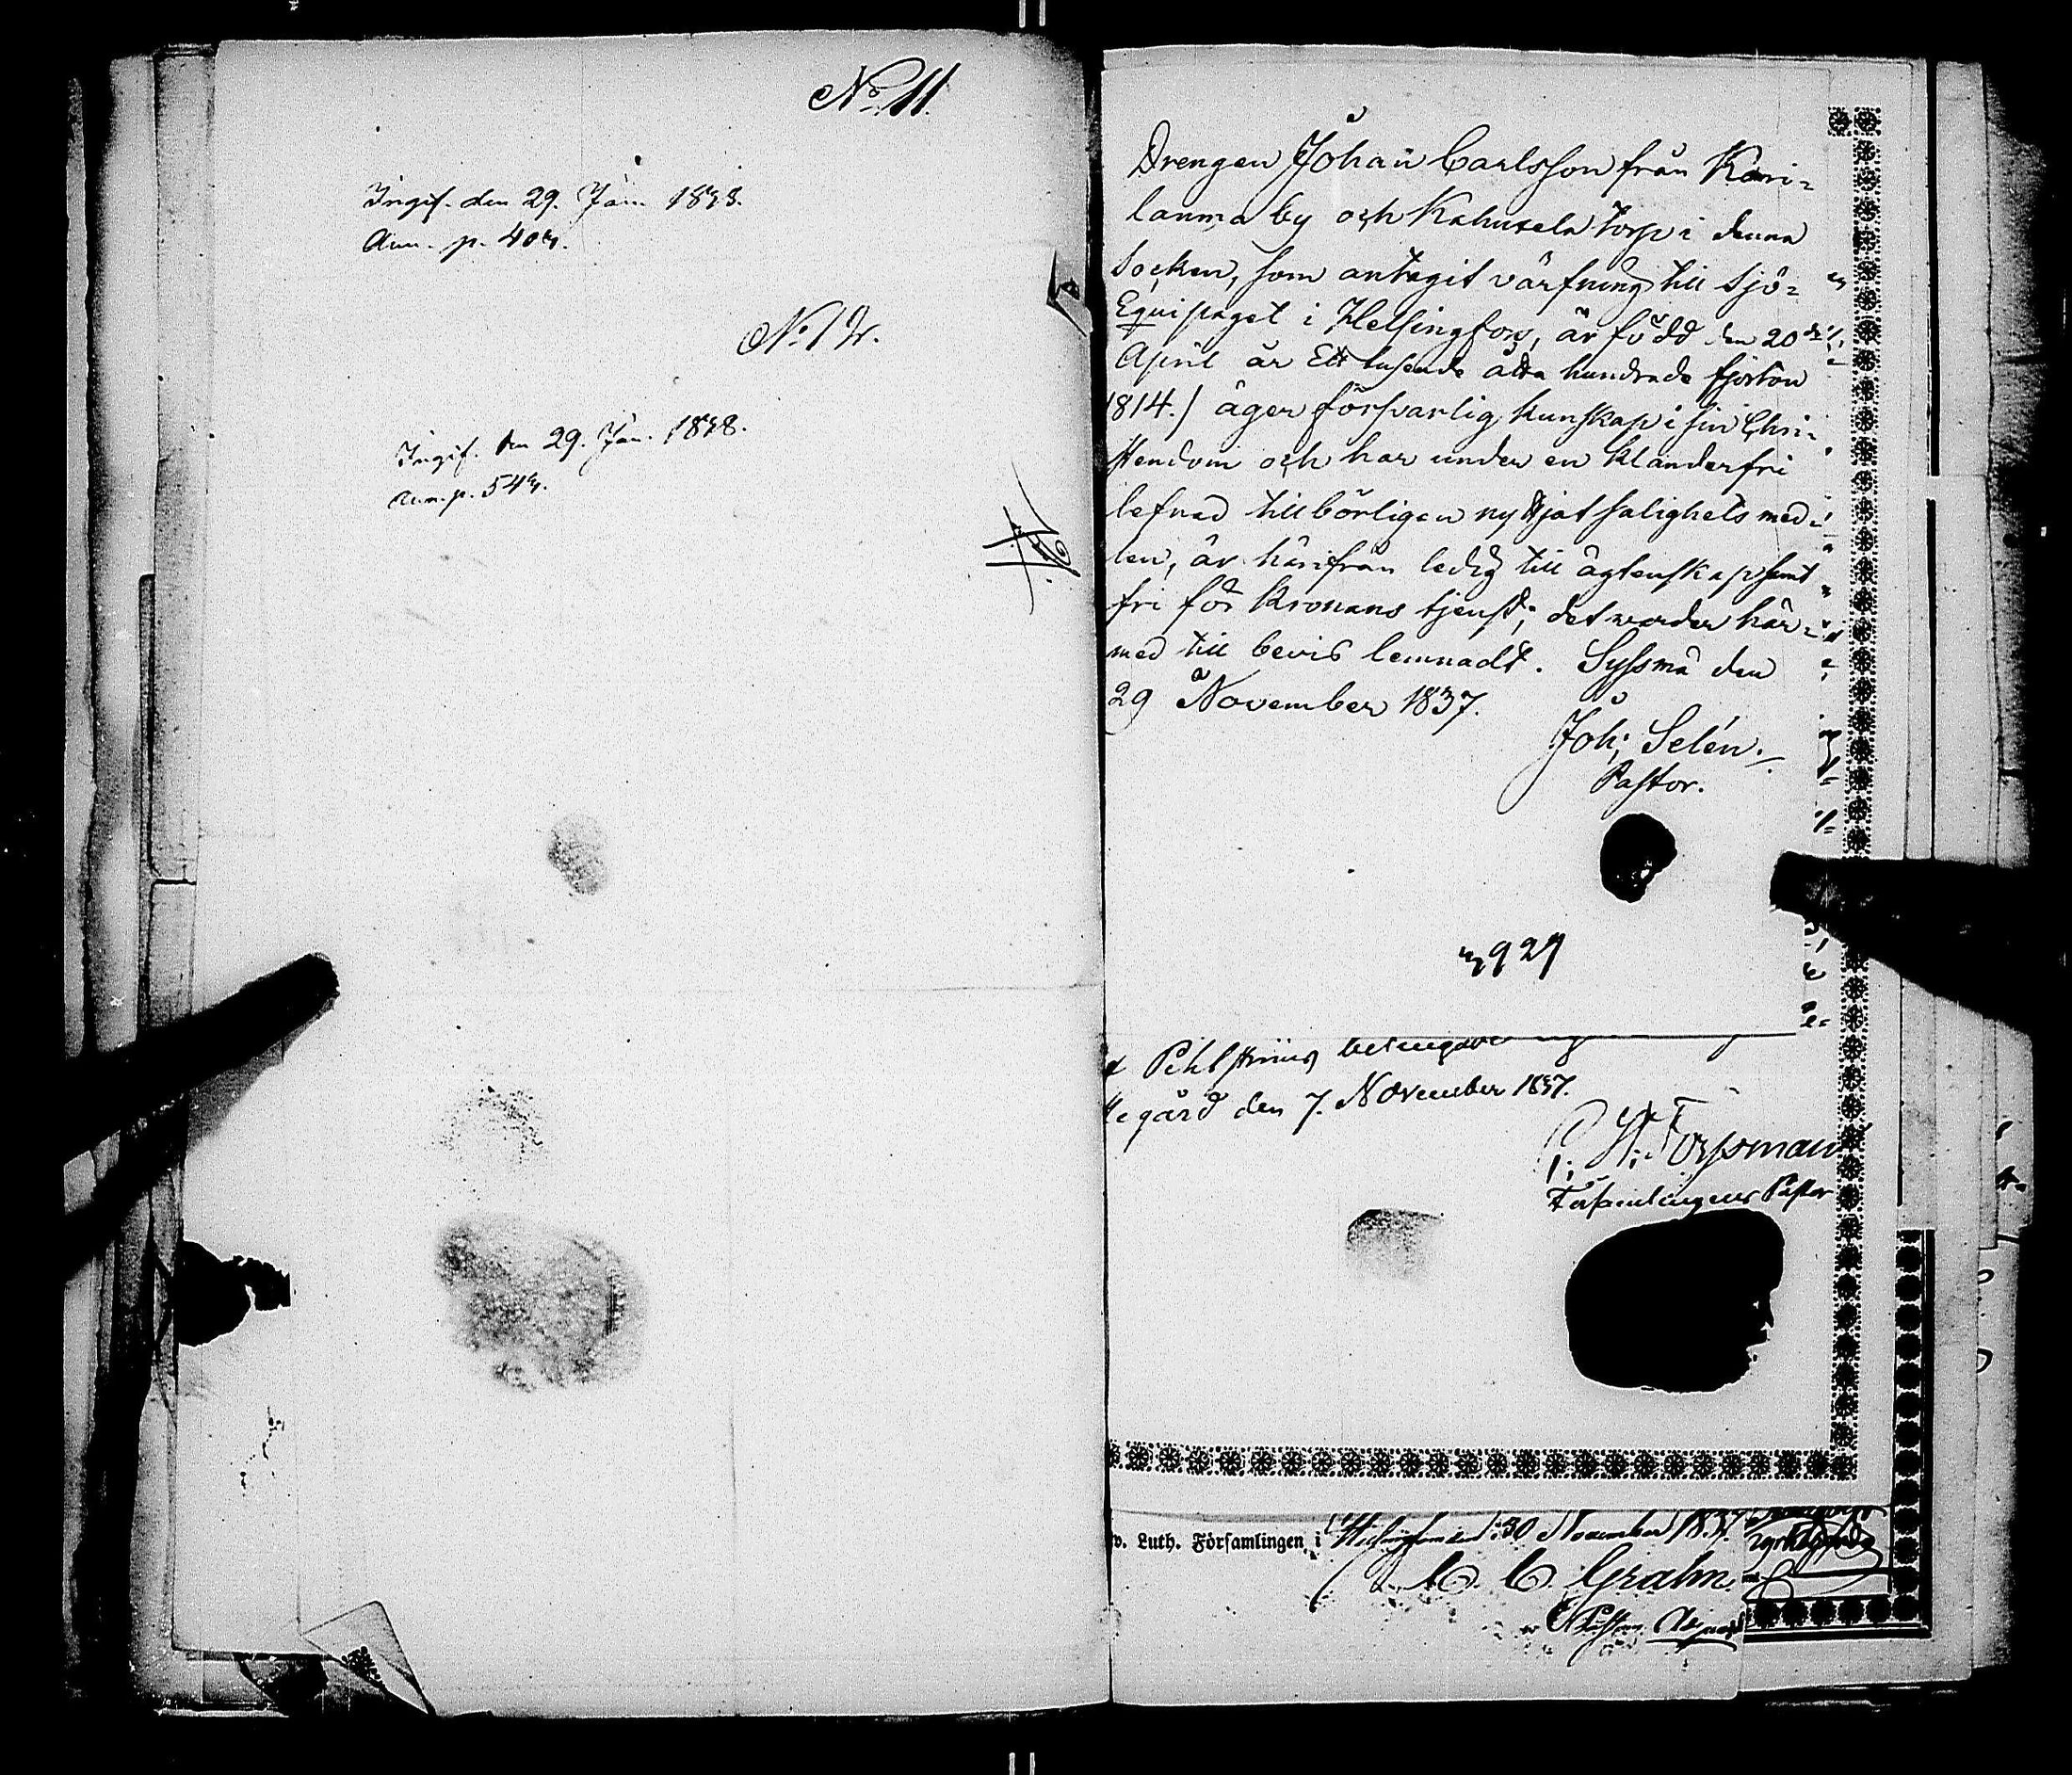 No 11.
Ingif. den 29. Jan. 1838.
Ann. p. 403.
No 12.
Ingif. den 29. Jan. 1838.
Ann. p. 543.
Drengen Johan Carlsson från Kari-
lanma by och Kahusela torp i denna
Socken, som antagit värfning till Sjö-
Equipaget i Helsingfors, är född den 20de
April år Ett tusende åtta hundrade fjorton
1814./ äger försvarlig kunskap i sin Chri-
stendom och har under en klanderfri
lefnad tillbörligen nyttjat salighets med-
len, är härifrån ledig till ägtenskap samt
fri för Kronans tjenst; det warder här-
med till bevis lemnadt. Syssmä den
29 November 1837.
Joh; Selén.
Pastor.
3929
Pihlströms
gård den 7. November 1837.
Forsman
Församlingens Pastor
v. Luth. Församlingen i Helsingfors den 30 November 1837.
C. C. Grahn
Pastor